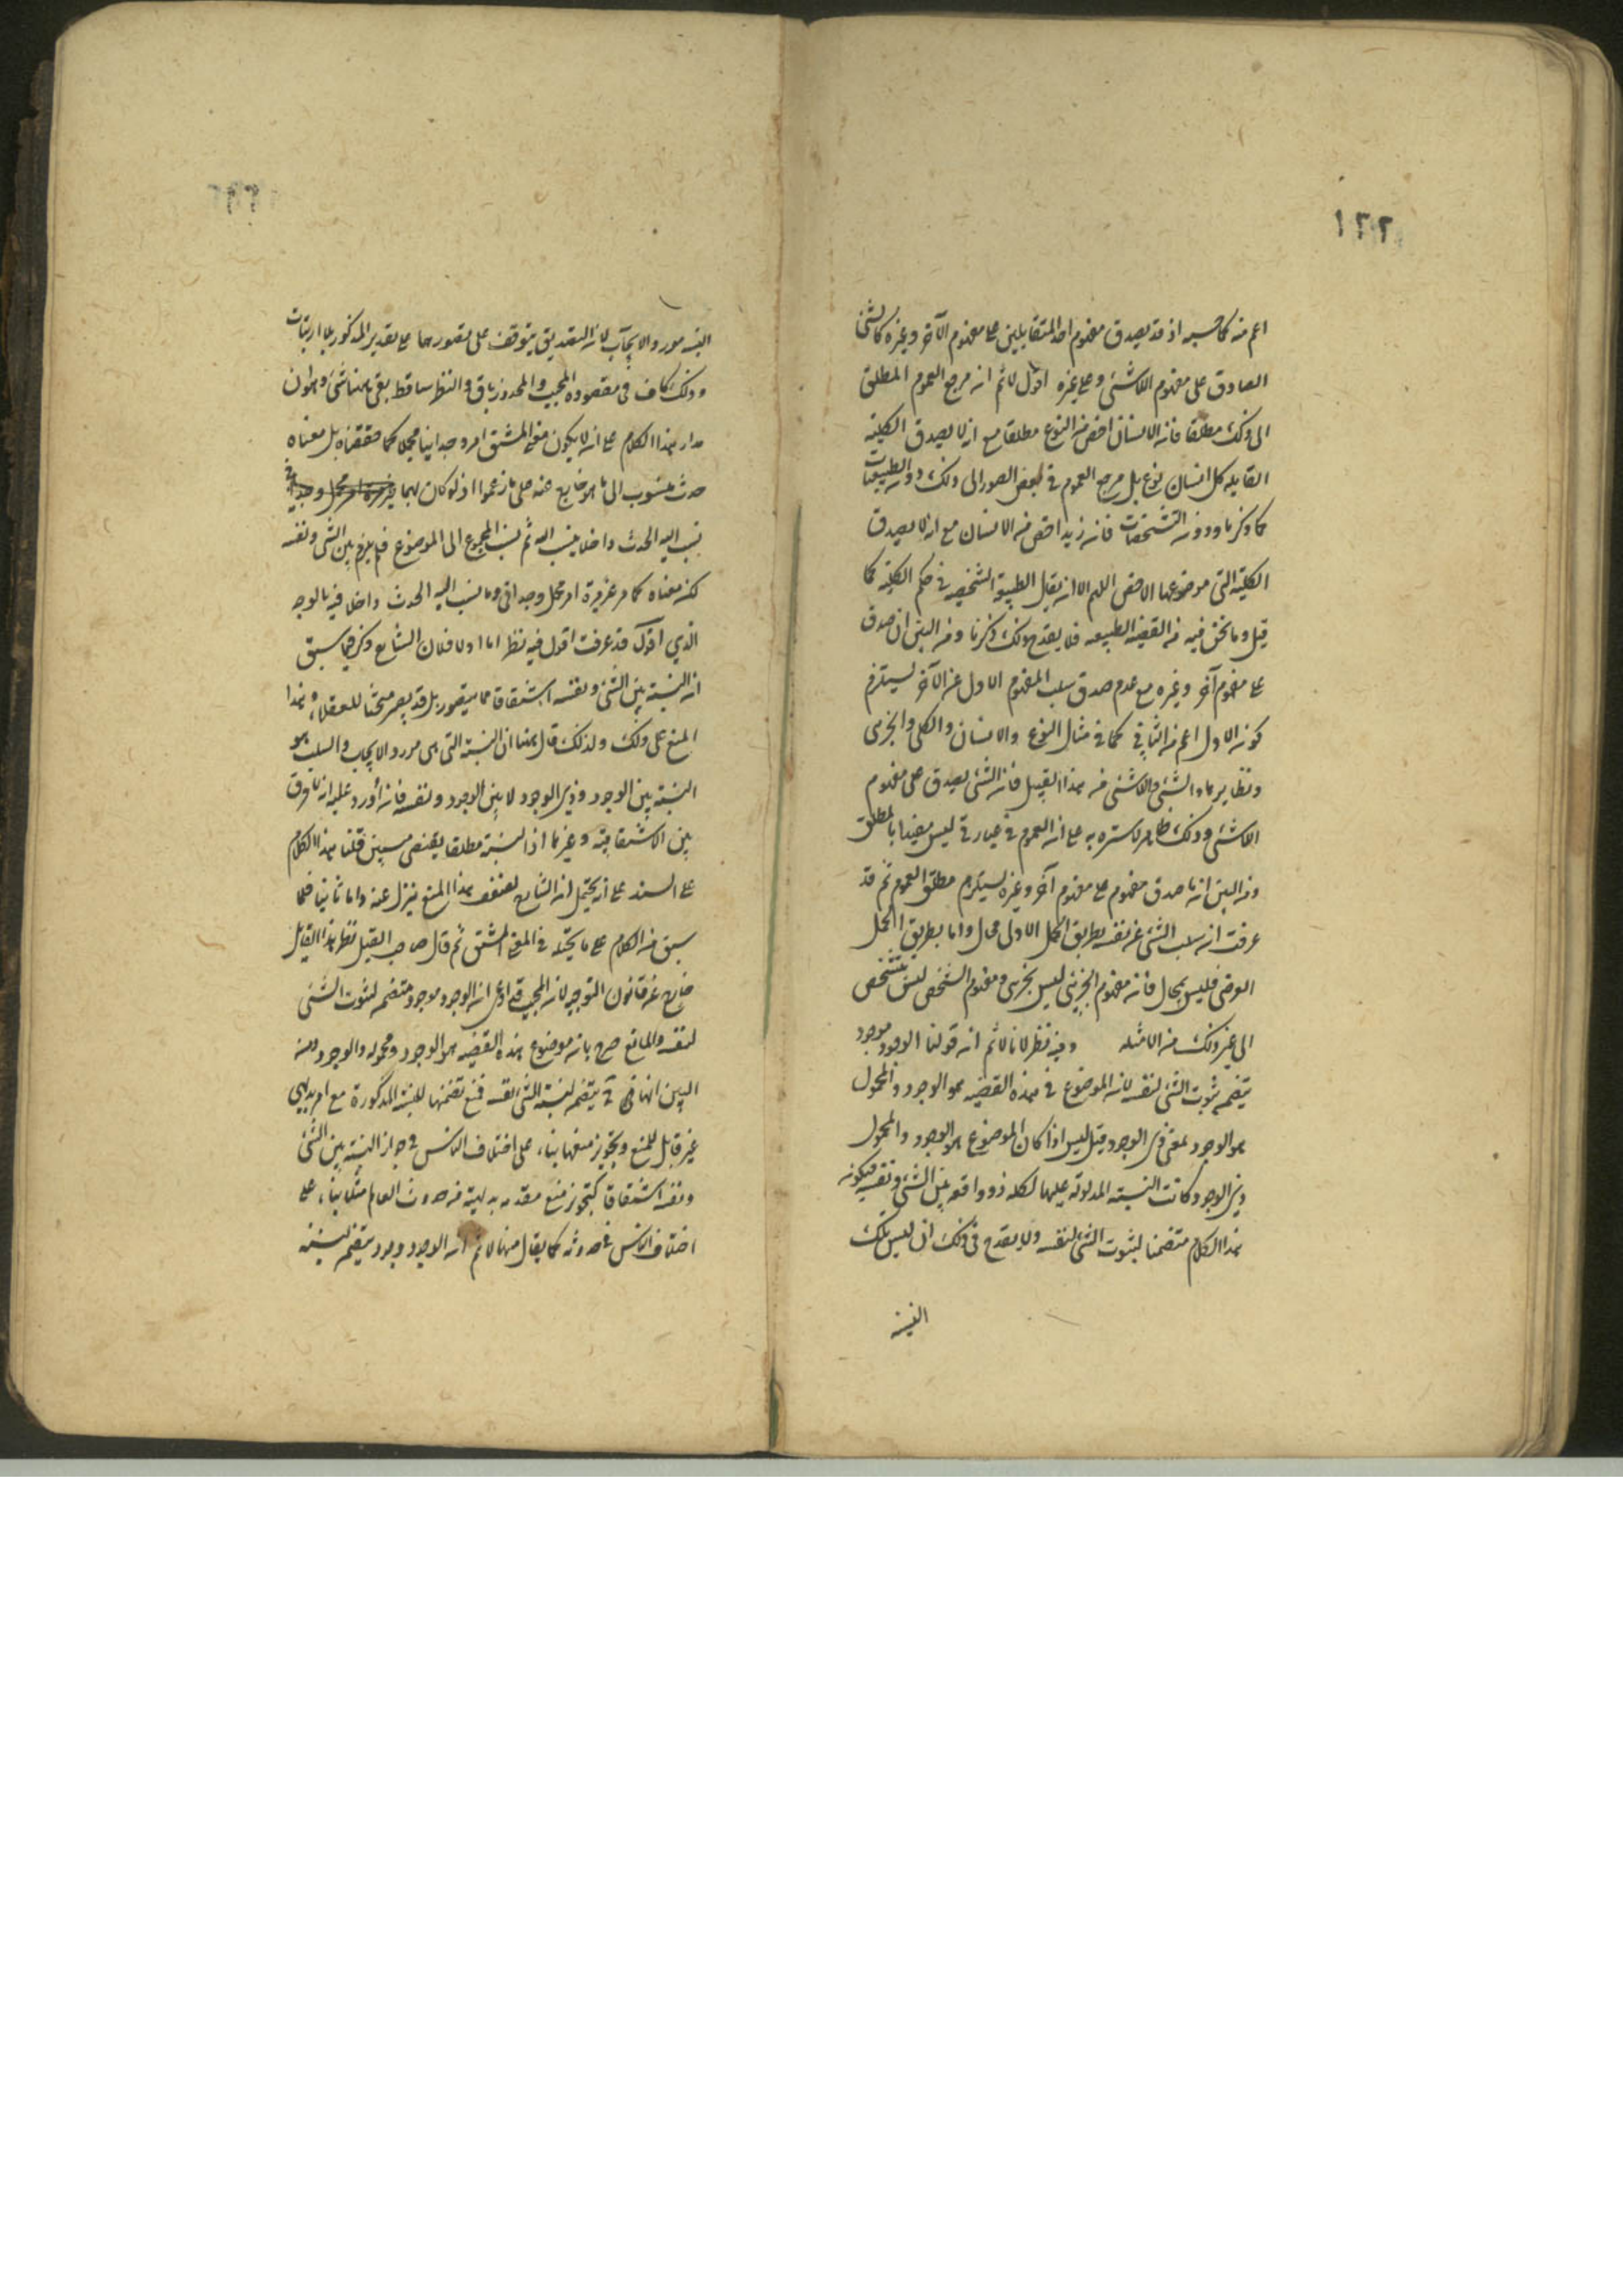 ١٢٢
اعم منه كما حسبه اذ قد يصدق مفهوم احد المتقابلين على مفهوم الآخر وغيره كالشئ
الصادق على مفهوم اللاشئ وعلى غيره اقول لا ثم ان مرجع العموم المطلق
الى ذلك مطلقا فان الانسان اخص من النوع مطلقا مع انه لا يصدق الكلية
القايله كل انسان نوع بل مرجع العموم في بعض الصور الى ذلك دون الطبيعيات
كما ذكرنا ودون الشخصيات فان زيدا اخص من الانسان مع انه لا يصدق
الكلية التي موضوعها الاخص اللهم الا ان يقال الطبيعية الشخصيه في حكم الكلية كما
قيل وما نحن فيه من القضية الطبيعيه فلا يقدح ذلك ذكرنا ومن البين ان صدق
على مفهوم آخر وغيره مع عدم صدق سلب المفهوم الاول عن الآخر يستلزم
كون الاول اعم من الثاني كما في مثال النوع والانسان والكلي والجزئي
ونظايرهما والشئ واللاشئ من هذا القبيل فان الشئ يصدق على مفهوم
اللاشئ وذلك ظاهر لا ستره به على ان العموم في عبارتي ليس مقيدا بالمطلق
ومن البين ان ما صدق مفهوم على مفهوم آخر وغيره يستلزم مطلق العموم ثم قد
عرفت ان سلب الشئ عن نفسه بطريق الحمل الاولى محال واما بطريق الحمل
العرضى فليس بمحال فان مفهوم الجزئي ليس بجزئى ومفهوم الشخص ليس بشخص
الى غير ذلك من الامثله وفيه نظر لانا لا ثم ان قولنا الوجود موجود
يتضمن ثبوت الشئ لنفسه لان الموضوع في هذه القضيه هو الوجود والمحمول
هو الوجود بمعنى ذى الوجود قيل ليس اذا كان الموضوع هو الوجود والمحمول
ذى الوجود كانت النسبة المدلوله عليها لكلمه ذو واقعه بين الشئ ونفسه فيكون
هذا الكلام متضمنا لثبوت الشئ لنفسه ولا يقدح في ذلك ان ليس تلك
النسبة
النسبة مورد الايجاب لان التصديق يتوقف على تصورهما على تقدير المذكور بلا ارتياب
وذلك كاف في مقصوده المجيب والمحذور باق والنظر ساقط بقى ههنا شئ وهو ان
مدار هذا الكلام على ان لا يكون معنى المشتق امرا وجدانيا مجملا كما حققناه بل معناه
حدث منسوب الى ما هو خارج عنه على ما زعموا اذ لو كان بهما
نسب اليه الحدث داخلا ينسب اليه ثم نسب المجموع الى الموضوع فلم يلزم بين الشئ ونفسه
لكن معناه كما مر غير مرة امر مجمل وجدانى وما نسب اليه الحدث داخلا فيه بالوجه
الذي اقول قد عرفت اقول فيه نظر اما اولا فلان الشارح ذكر فيما سبق
ان النسبة بين الشئ ونفسه اشتقاقا مما يتصور بل قد يصير مبحثا للعقلاء وهذا
المنع على ذلك ولذلك قال ههنا ان النسبة التي هى مورد الايجاب والسلب هو
النسبة بين الوجود وذي الوجود لا بين الوجود ونفسه فان أورد عليه انه لا فرق
بين الاشتقاقية وغيرها اذ النسبة مطلقا يقتضى مسبين قلنا هذا الكلام
على السند على انه يحتمل ان الشارح لضعف هذا المنع ينزل عنه واما ثانيا فلما
سبق من الكلام على ما يحمله في المعنى المشتق ثم قال صاحب القيل نظر هذا القايل
خارج عن قانون التوجيه لان المجيب قد ادعى ان الوجود موجود متضمن لثبوت الشئ
لنفسه والمانع صرح بان موضوع هذه القضيه هو الوجود ومحموله ذو الوجود ومن
البين انها يتضمن نسبة الشئ الى نفسه فمنع تضمنها للنسبة المذكورة مع امر بديهى
غير قابل للمنع وتجويز منعها بناء على اختلاف الناس في جواز النسبة بين الشئ
ونفسه اشتقاقا كتجويز منع مقدمه بديهية من حدوث العالم مثلا بناء على
اختلاف الناس في حدوثه كما يقال ههنا لا ثم ان الوجود موجود يتضمن نسبة